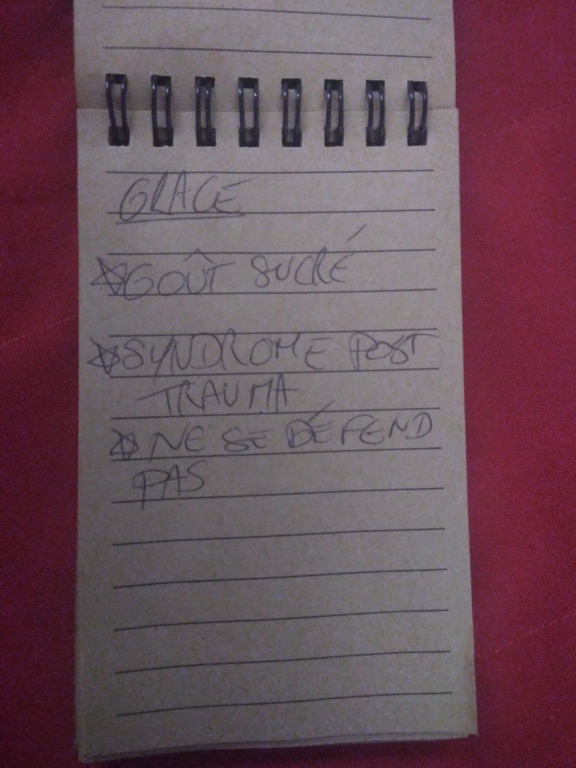 GRACE
☆ GOÛT SUCRÉ
☆ SYNDROME POST
TRAUMA
☆ NE SE DÉFEND
PAS